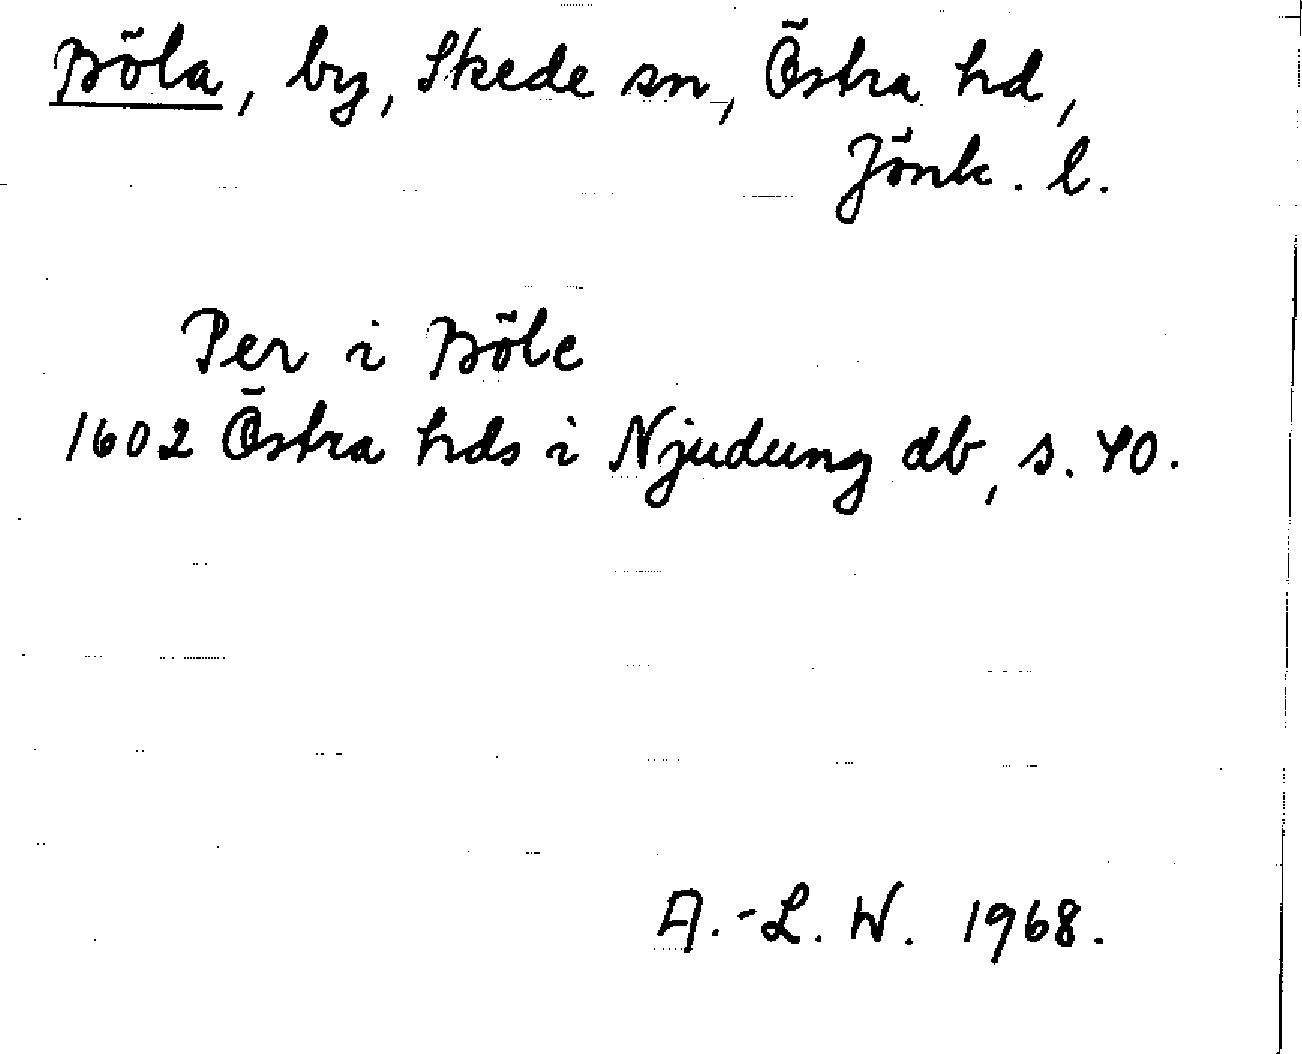 Böla, by, Skede sn, Östra hd,
Jönk. l.
Per i Böle
1602 Östra hds i Njudung db, s. 40.
A.-L. W. 1968.